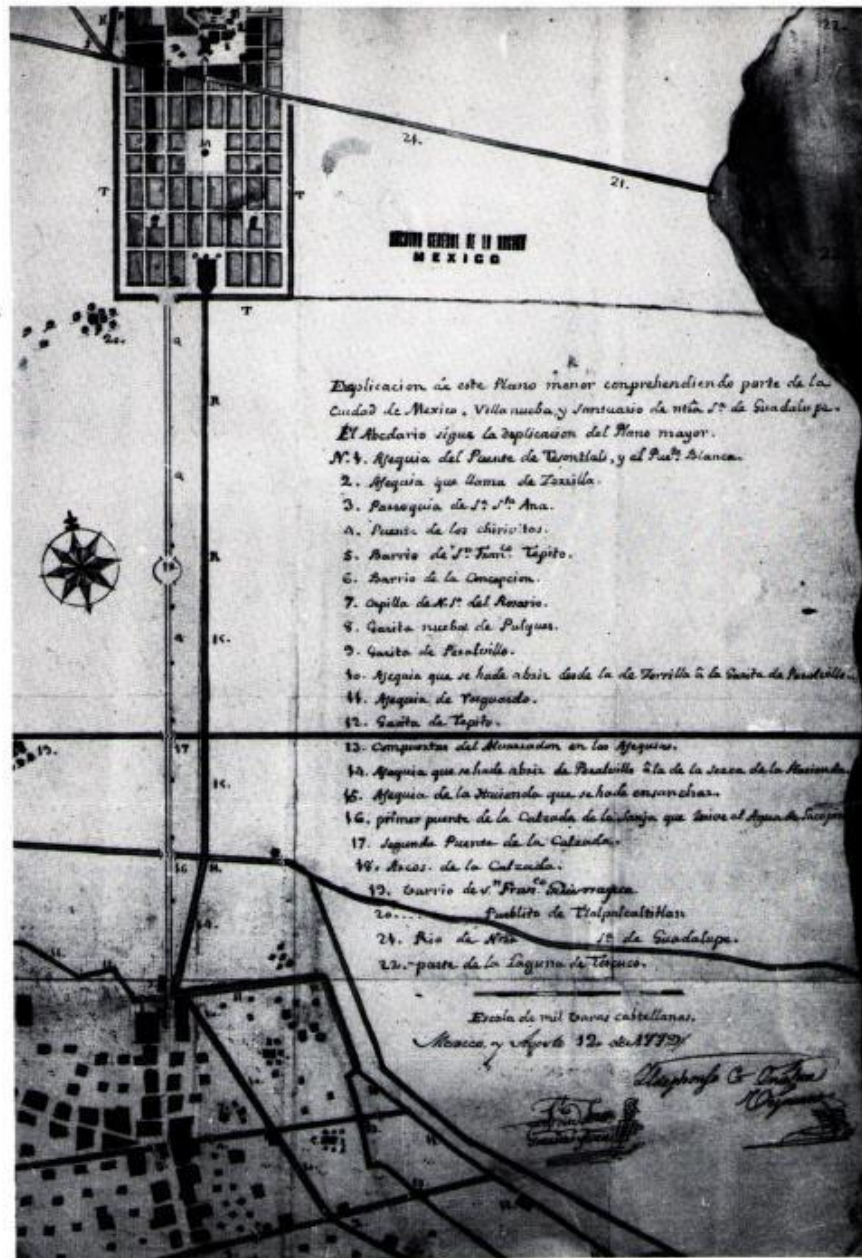 ARCHIVO GENERAL DE LA NACION
MEXICO
Explicacion de este Plano menor comprehendiendo parte de la
Ciudad de Mexico, Villa nueba, y Santuario de ntra Sª de Guadalupe.
El Abedario sigue la deplicacion del Plano mayor.
N. 1. Asequia del Puente de Tesontlali, y el Puete Blanco.
2. Asequia que llama de Zorrilla.
3. Parroquia de Sª Sta Ana.
4. Puente de los chirivitos.
5. Barrio de Sn Franco Tepito.
6. Barrio de la Concepcion.
7. Capilla de N. Sª del Rosario.
8. Garita nueba de Pulques.
9. Garita de Peralvillo.
10. Asequia que se hade abrir desde la de Zorrilla â la Garita de Peralvillo.
11. Asequia de Resguardo.
12. Garita de Tepito.
13. Compuertas del en las Asequias.
14. Asequia que se hade abrir de Peralvillo â la de la serca de la Hacienda.
15. Asequia de la Hacienda que se hade ensanchar.
16. primer puente de la Calzada de la Sanja que al Agua de
17. Segundo Puente de la Calzada.
18. Arcos de la Calzada.
19. Barrio de Sn Franco
20. Pueblito de
21. Rio de Ntra Sª de Guadalupe.
22. parte de la Laguna de Tescuco.
Escala de mil varas castellanas.
Mexico, y Agosto 12 de